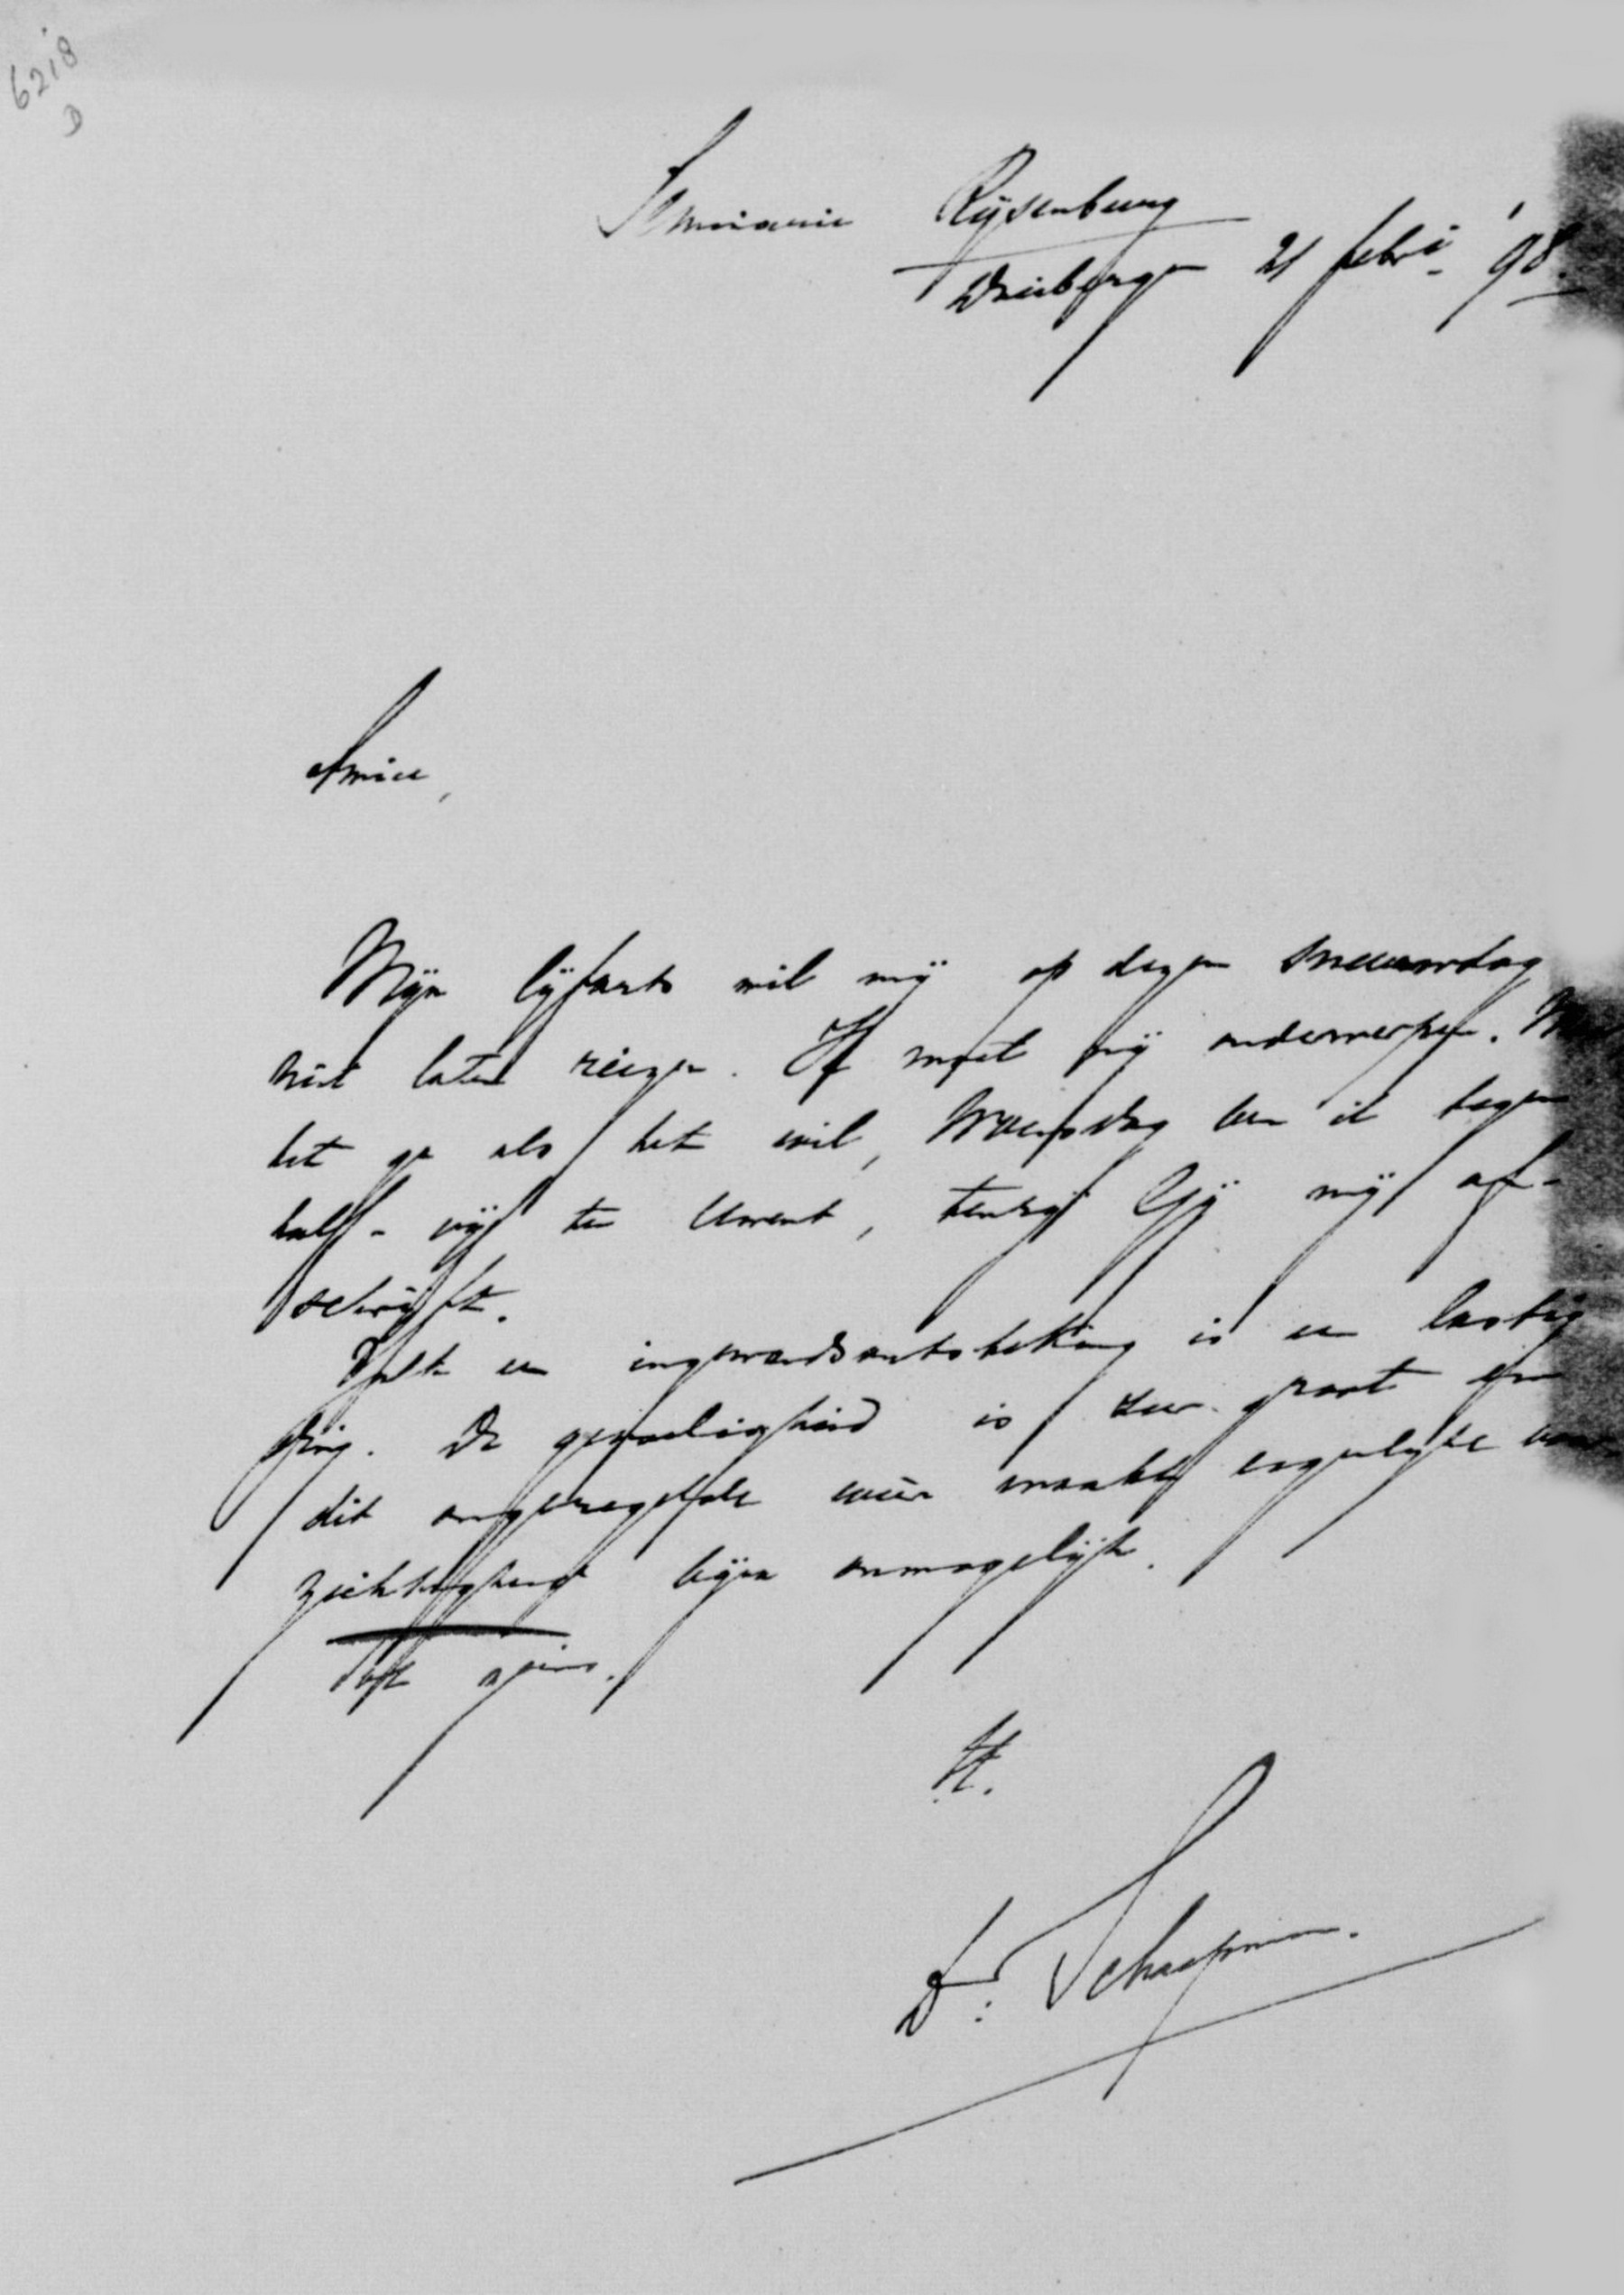 6218
D
Seminarie Rijsenburg
Driebergen 21 febri '98.
Amice,
Mijn lijfarts wil mij op dezen sneeuwdag
niet laten reizen. Ik moet mij onderwerpen.
het ga als het wil, Woensdag ben ik tegen
half-vijf te Utrecht, tenzij Gij mij af-
schrijft.
Zulk een ingewandsontsteking is een lastig
ding. De gevoeligheid is zeer groot en
dit ongeregelde weer maakt eigenlijke voor
zichtigheid bijna onmogelijk.
tt.
Dr. Schaepman.